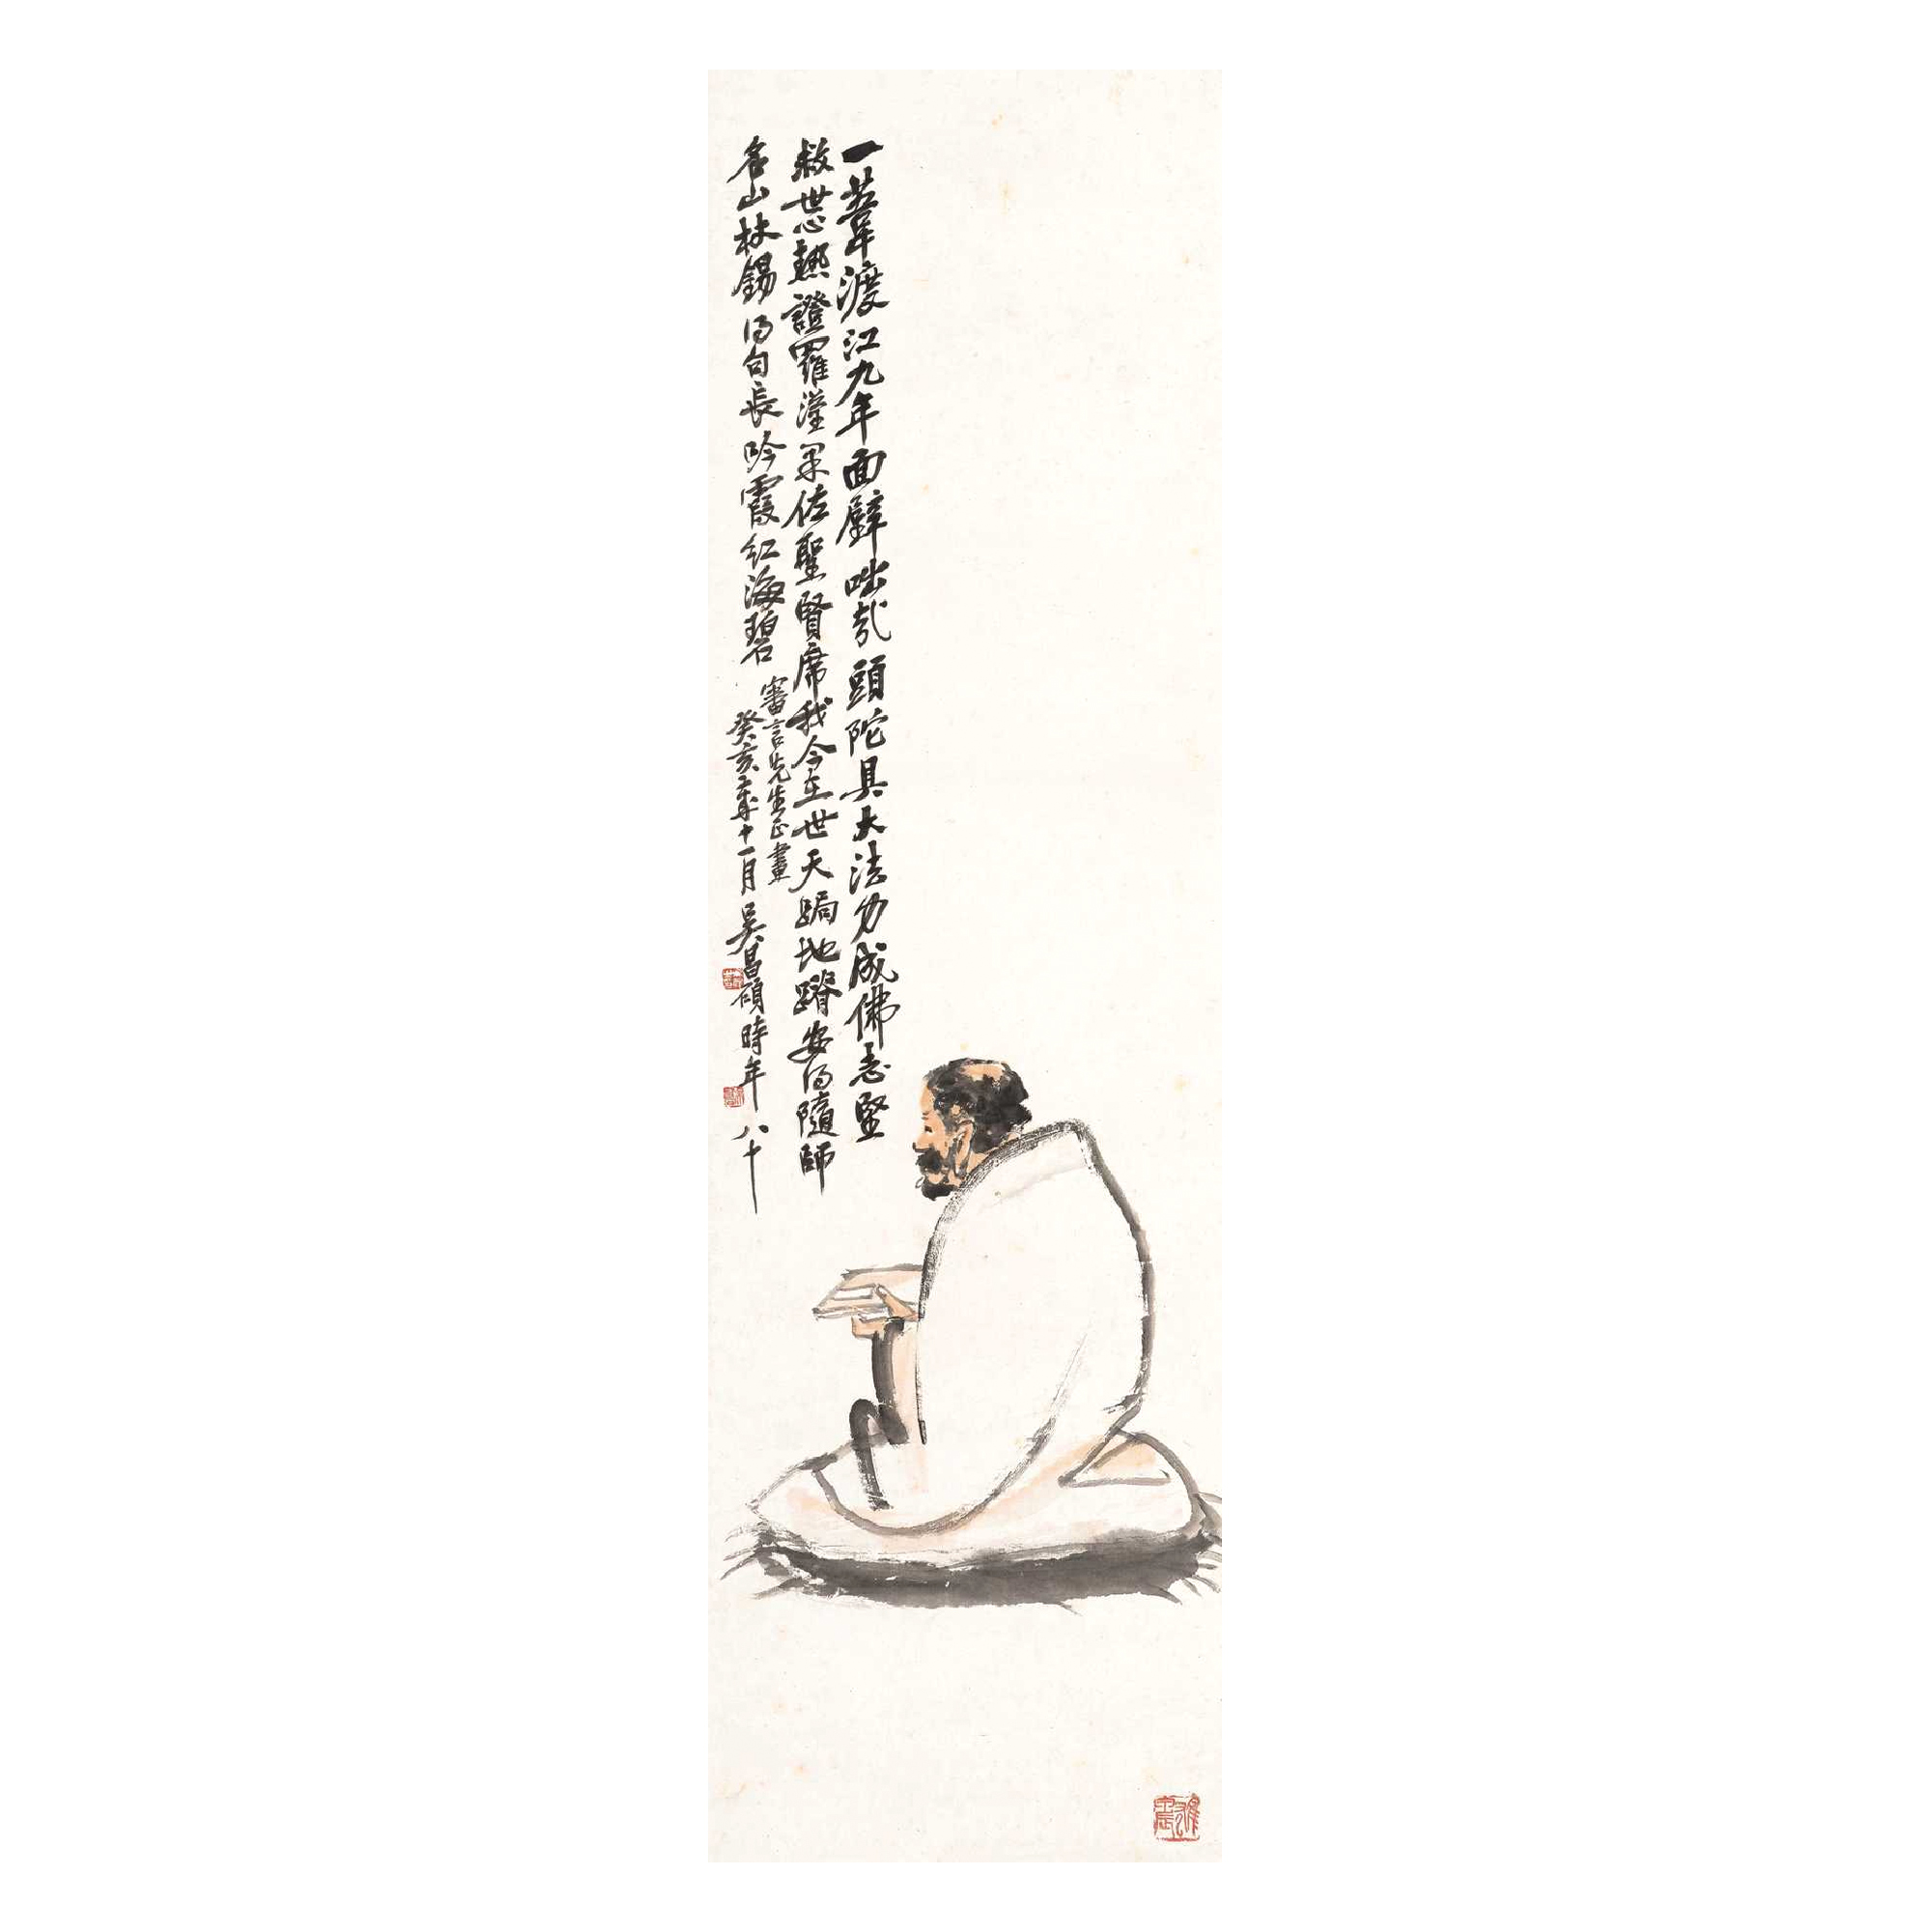 一葦渡江九年面壁咄哉頭陀具大法力成佛志堅
救世心熱證羅漢果佐聖賢席我今在世天跼地蹐安得隨師
名山杖錫得句長吟霞紅海碧
審言先生正畫
癸亥年十一月吳昌碩時年八十